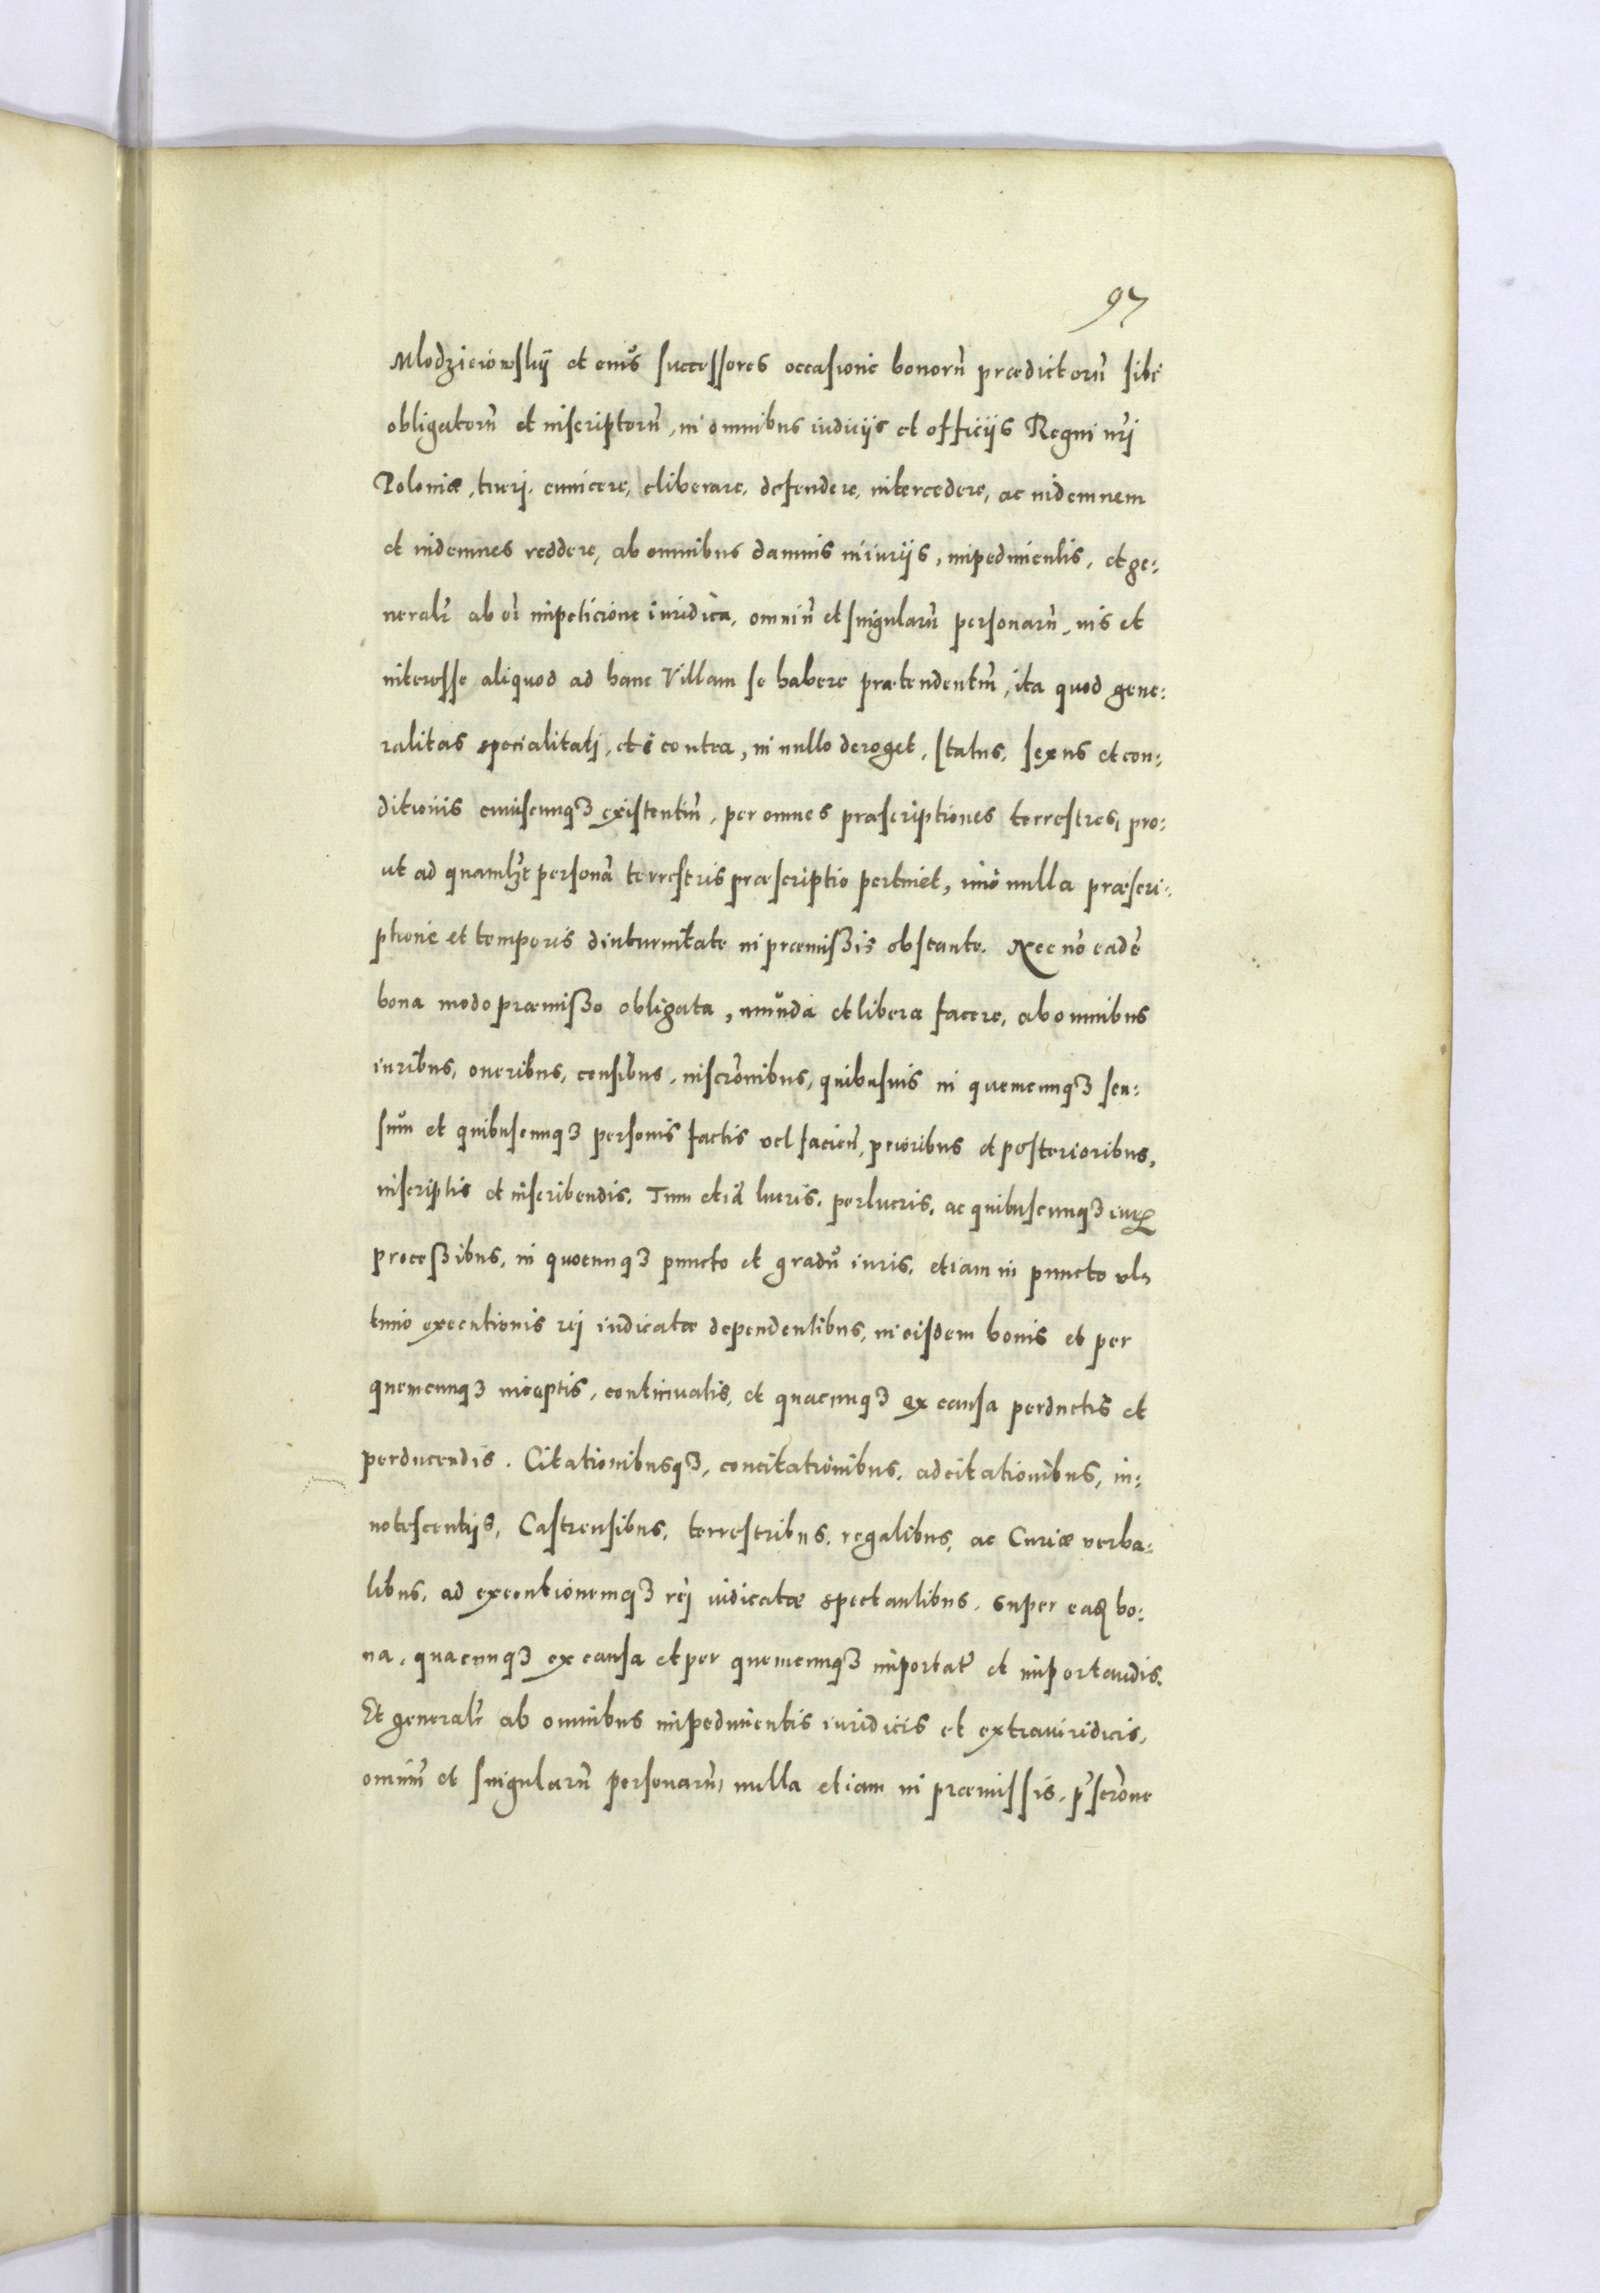 97
Mlodzieiowskij et eius successores occasione bonorũ prædictorũ sibi
obligatorũ et inscriptorũ, in omnibus iudicijs et officijs Regni nr̃j
Poloniæ, tuerj, euincere, eliberare, defendere, intercedere, ac indemnem
et indemnes reddere, ab omnibus damnis iniurijs, impedimentis, et ge:
neralr̃ ab oĩ impeticione iuridica, omniũ et singularũ personarũ, ius et
interesse aliquod ad hanc Villam se habere prætendentiũ, ita quod gene:
ralitas specialitatj, et è contra, in nullo deroget, status, sexus et con:
ditionis cuiuscunqȝ existentiũ, per omnes præscriptiones terrestres, pro:
ut ad quamlꝫt personã terrestris præscriptio pertinet, imò nulla præscri:
ptione et temporis diuturnit̃ate in præmißis obstante. Nec nõ eadẽ
bona modo præmißo obligata, munda et libera facere, ab omnibus
iurib̃us, oneribus, censib̃us, inscrõnibus, quibusuis in quemcunqȝ sen:
sum et quibuscunqȝ personis factis vel faciẽn, prioribus et posterioribus,
inscriptis et inscribendis. Tum etiã lucris, perlucris, ac quibuscunqȝ iurꝝ
proceßibus, in quocunqȝ puncto et gradu iuris, etiam in puncto vl:
timo executionis rej iudicatæ dependentibus, in eisdem bonis et per
quemcunqȝ inceptis, continuatis, et quacunqȝ ex causa perductis et
perducendis. Citationibusqȝ, concitationibus, adcitationibus, in:
notescentijs, Castrensibus, terrestribus, regalibus, ac Curiæ verba:
libus, ad executionemqȝ rej iudicatæ spectantibus, super eaꝗ bo:
na, quacunqȝ ex causa et per quemcunqȝ importat̃ et importandis.
Et generalr̃ ab omnibus impedimentis iuridicis et extraiuridicis,
omniũ et singularũ personarũ, nulla etiam in præmissis, p̃scrõne